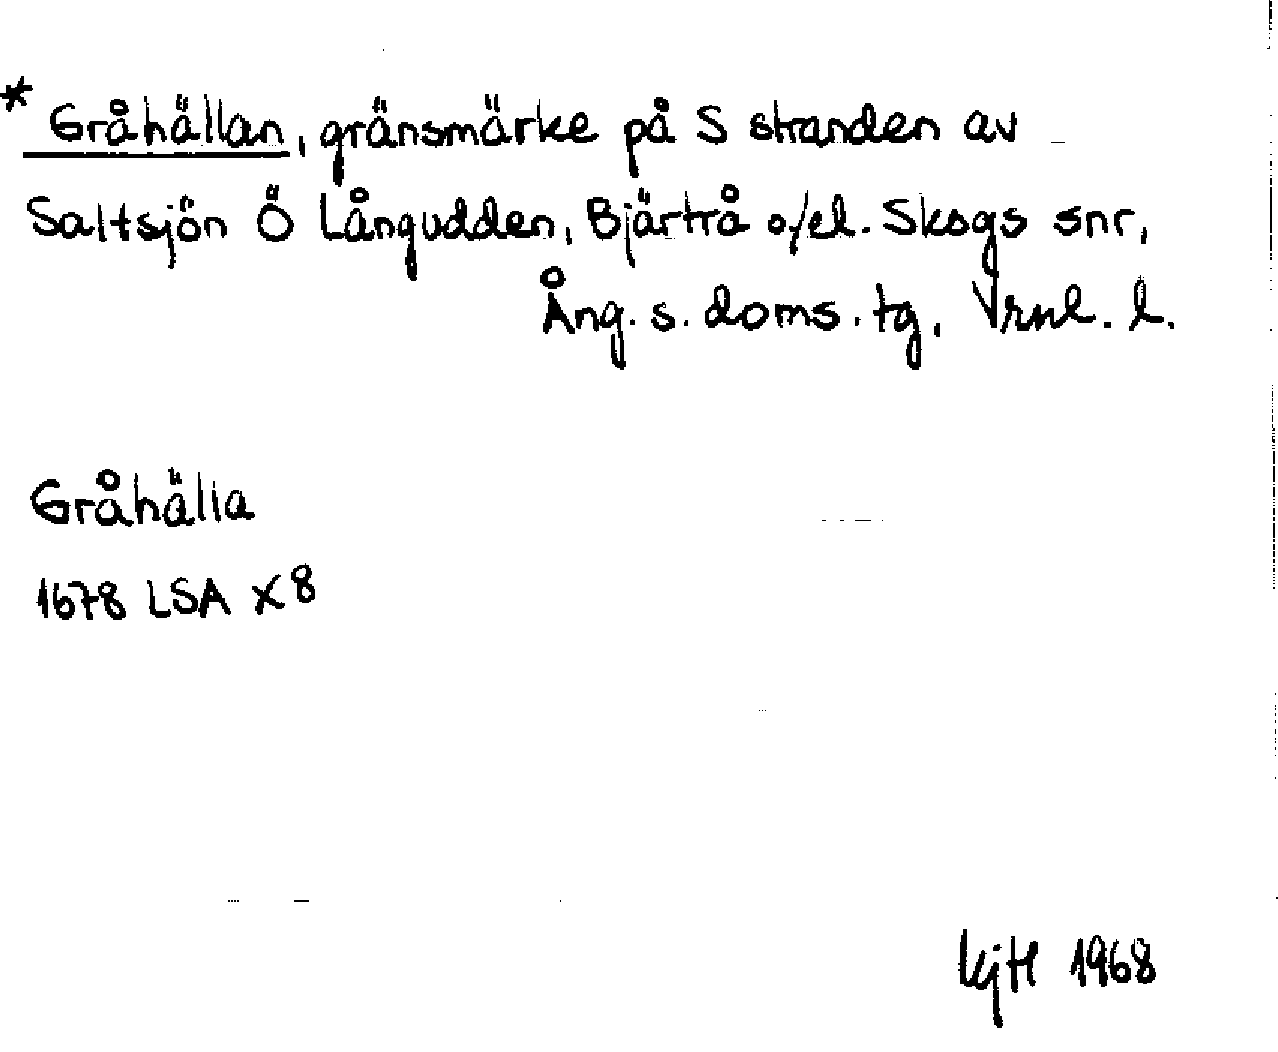 * Gråhällan, gränsmärke på S stranden av
Saltsjön Ö Långudden, Bjärtrå o/el. Skogs snr,
Ång. s. doms. tg, Vrnl. l.
Gråhälla
1678 LSA X8
KjH 1968